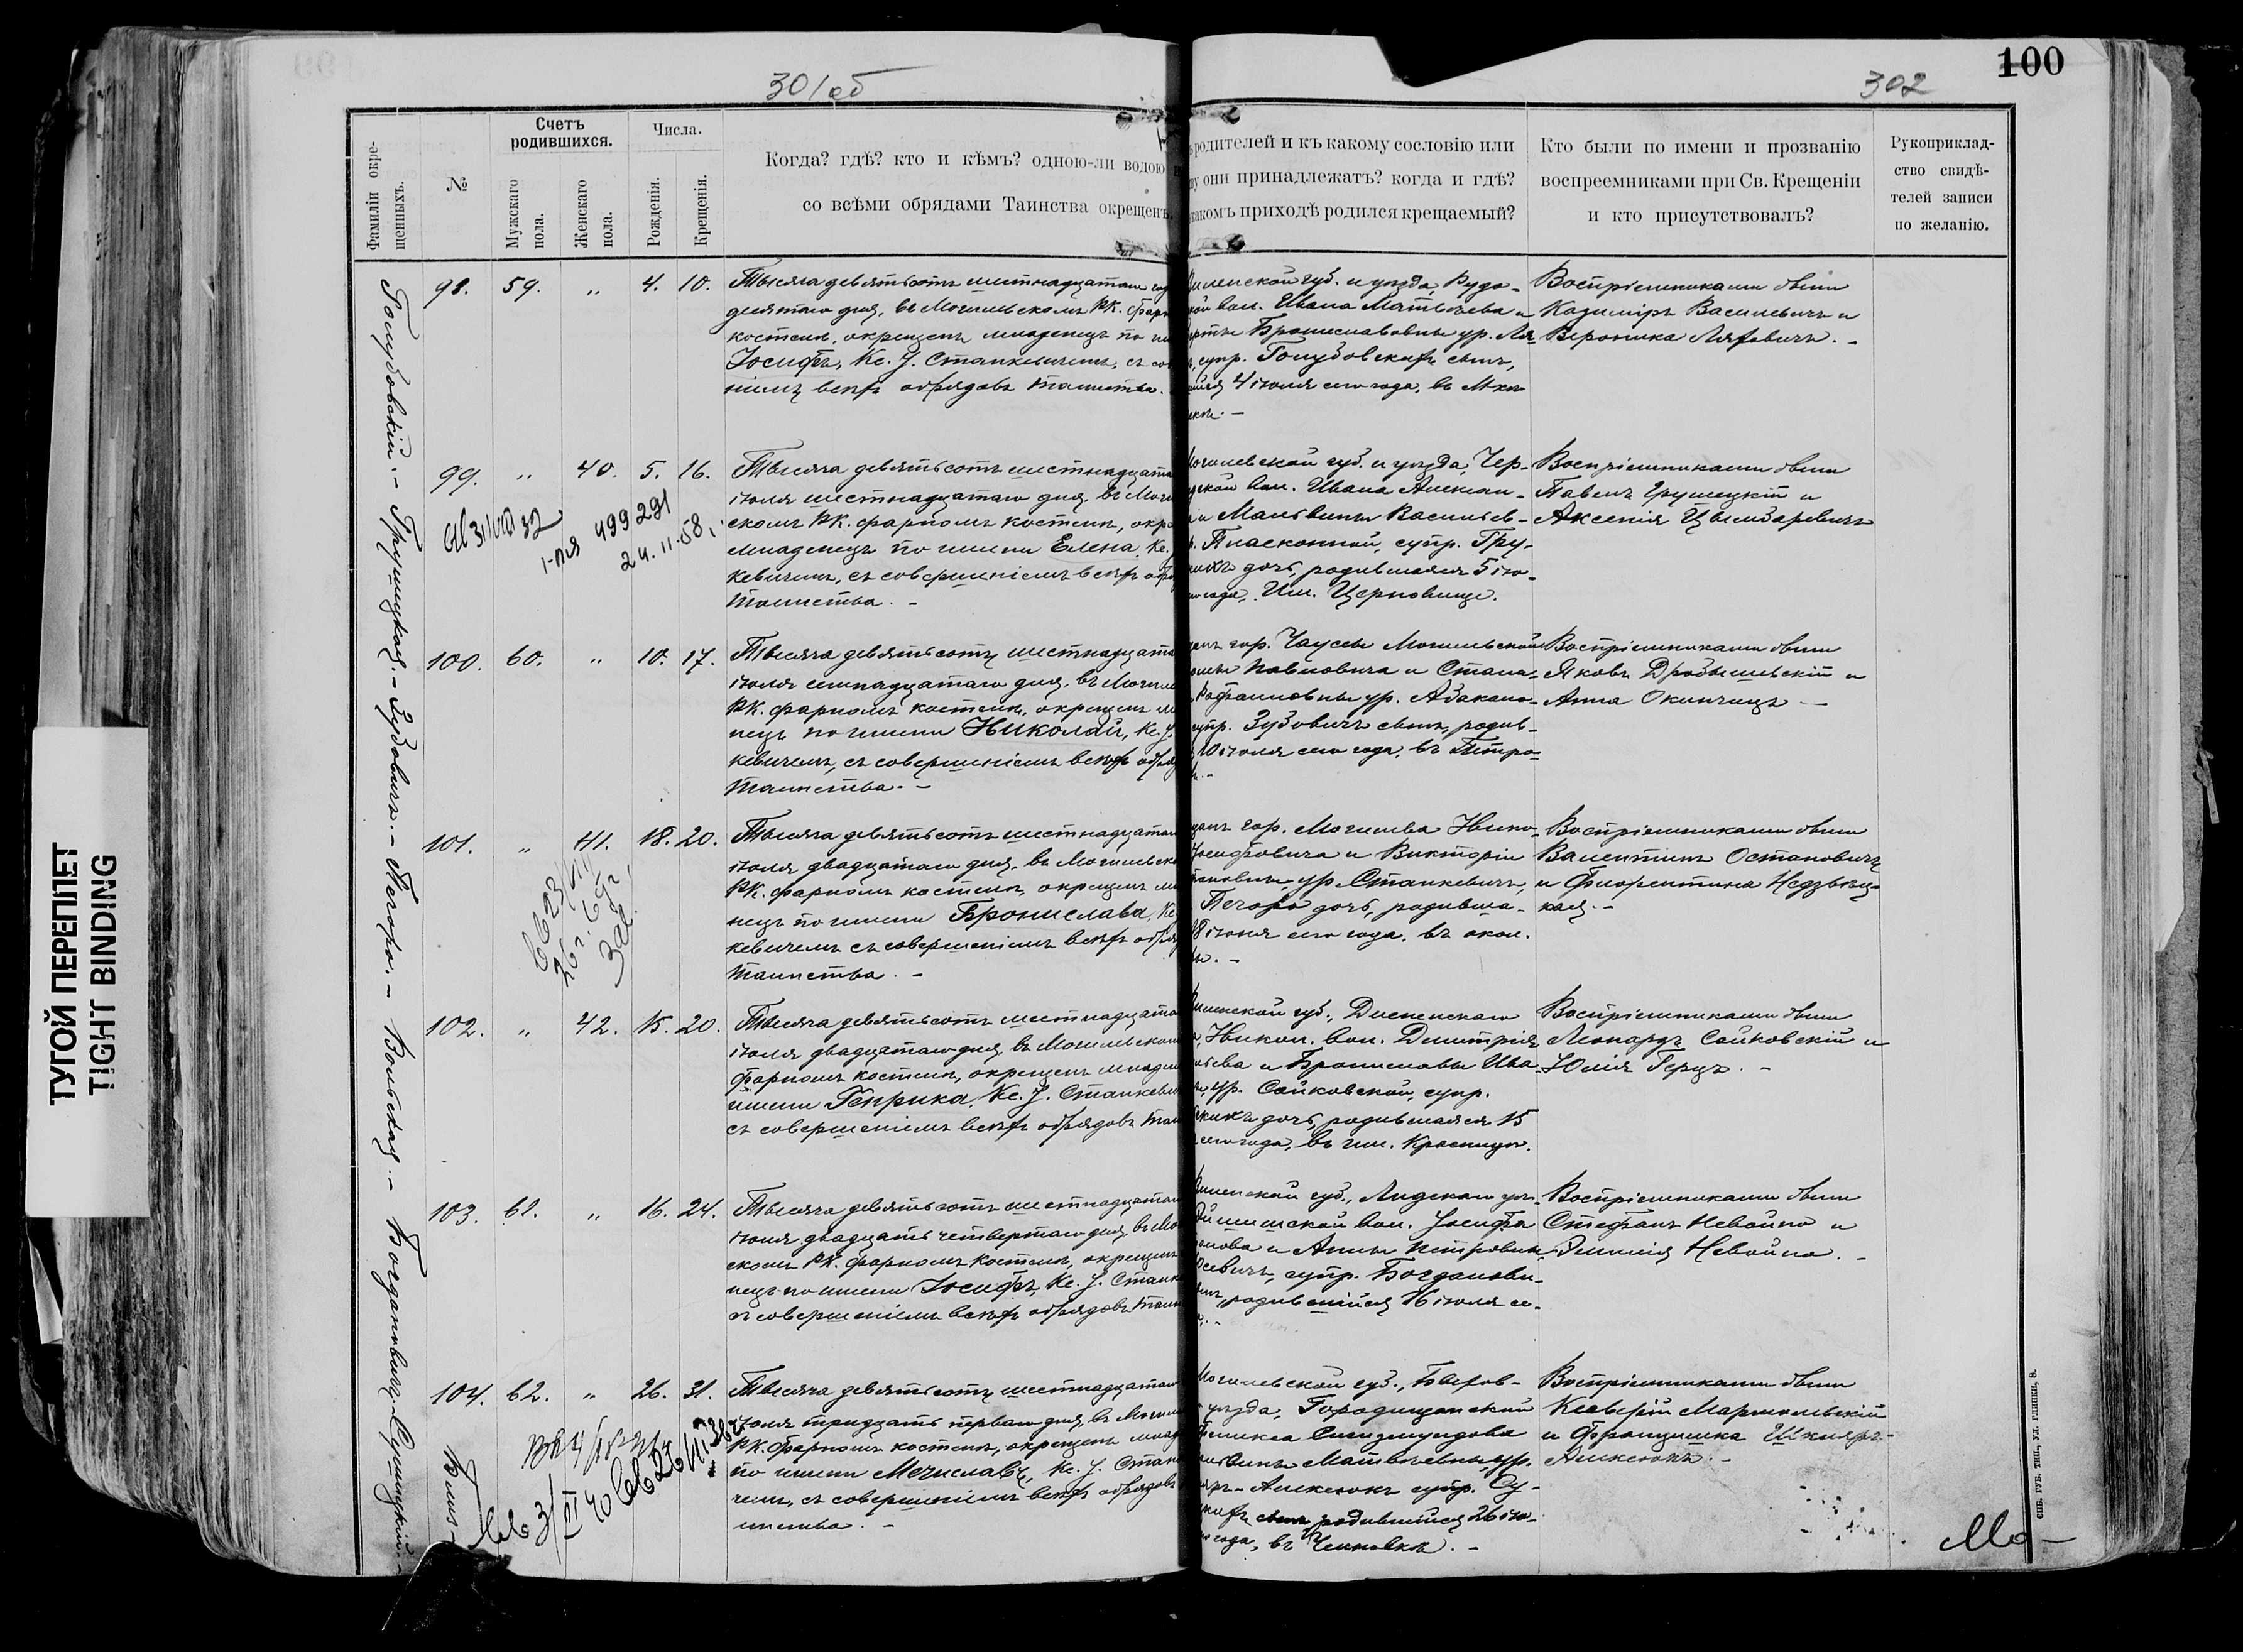 301об
302
100
Фамиліи окре-
щенныхъ.
№
Счетъ
родившихся.
Мужскаго
пола.
Женскаго
пола.
Числа.
Рожденія.
Крещенія.
Когда? гдѣ? кто и кѣмъ? одною-ли водою и
со всѣми обрядами Таинства окрещенъ.
родителей и къ какому сословію или
они принадлежатъ? когда и гдѣ?
какомъ приходѣ родился крещаемый?
Кто были по имени и прозванію
воспреемниками при Св. Крещеніи
и кто присутствовалъ?
Рукоприклад-
ство свидѣ-
телей записи
по желанію.
Голубовскій. - Грушецкая. - Зубовичъ. - Печоро. - Вольская. - Богдановичъ. Сушицкій. -
98. 59. " 4. 10.
Тысяча девятьсотъ шестнадцатаго
десятаго дня, въ Могилевскомъ РК. фарн
костелѣ, окрещенъ младенецъ по
Іосифъ, Кс. J. Станкевичемъ, съ
ніемъ всѣхъ обрядовъ таинства.
Виленской губ. и уѣзда, Рудо-
кой вол. Ивана Матвѣева и
Брониславовны ур. Ля-
супр. Голубовскихъ сынъ,
4 іюля сего года, въ
Воспріемниками были
Казиміръ Василевичъ и
Вероника Ляховичъ. -
99. " 40. 5. 16.
499291
24.11.58
Тысяча девятьсотъ шестнадцата
іюля шестнадцатаго дня, въ Моги
скомъ РК. фарномъ костелѣ, окре
младенецъ по имени Елена, Кс.
кевичемъ, съ совершеніемъ всѣхъ обр
таинства. -
Могилевской губ. и уѣзда, Чер-
ской вол. Ивана Алексан-
и Мальвины Васильев-
Пласконной, супр. Гру-
дочь, родившаяся 5 ію-
года, Им. Церковище.
Воспріемниками были
Павелъ Грушецкій и
Аксенія Цымбаревичъ
100. 60. " 10. 17.
Тысяча девятьсотъ шестнадцата
іюля семнадцатаго дня, въ Могилев
РК. фарномъ костелѣ, окрещенъ м
нецъ по имени Николай, Кс. J.
кевичемъ, съ совершеніемъ всѣхъ обря
таинства. -
гор. Чаусы Могилевской
Павловича и Стани-
Рафаиловны ур. Абакано-
супр. Зубовичъ сынъ, родив-
10 іюля сего года, въ Петро-
Воспріемниками были
Яковъ Дробышевскій и
Анна Окинчицъ -
101. " 41. 18. 20.
Тысяча девятьсотъ шестнадцатаго
іюля двадцатаго дня, въ Могилевско
РК. фарномъ костелѣ, окрещенъ мл
нецъ по имени Бронислава, Кс
кевичемъ съ совершеніемъ всѣхъ обряд
таинства. -
гор. Могилева Нико-
Іосифовича и Викторіи
ур. Станкевичъ,
Печоро дочь, родивша-
18 іюня сего года, въ окол.
Воспріемниками были
Валентинъ Остановичъ
и Флорентина Недзвѣц-
кая. -
102. " 42. 15. 20.
Тысяча девятьсотъ шестнадцата
іюля двадцатаго дня, въ Могилевском
фарномъ костелѣ, окрещенъ младен
имени Генрика, Кс. J. Станкевич
съ совершеніемъ всѣхъ обрядовъ таи
Виленской губ., Дисненскаго
Никол. вол. Дмитрія
и Брониславы Ива-
ур. Сайковской, супр.
дочь, родившаяся 15
сего года, въ им. Красница.
Воспріемниками были
Леонардъ Сайковскій и
Юлія Герцъ. -
103. 61. " 16. 24.
Тысяча девятьсотъ шестнадцатаго
іюля двадцать четвертаго дня, въ Мо
скомъ РК. фарномъ костелѣ, окрещенъ
нецъ по имени Іосифъ, Кс. J. Станке
съ совершеніемъ всѣхъ обрядовъ таин
Виленской губ., Лидскаго уѣз-
Эйшишской вол. Іосифа
и Анны Петровны
супр. Богданови-
родившійся 16 іюля се-
Воспріемниками были
Стефанъ Невойно и
Эмилія Невойно. -
104. 62. " 26. 31.
Тысяча девятьсотъ шестнадцатаго
іюля тридцать перваго дня, въ Могил
РК. фарномъ костелѣ, окрещенъ млад
по имени Мечиславъ, Кс. J. Станк
чемъ, съ совершеніемъ всѣхъ обрядовъ
Могилевской губ., Быхов-
уѣзда, Городищанской
Феликса Сигизмундова
Матвѣевны, ур.
Алексюкъ супр. Су-
сынъ, родившійся 26 ію-
года, въ
Воспріемниками были
Ксаверій Мармолевскій
и Францишка Шкляръ-
Алексюкъ. -
ТУГОЙ ПЕРЕПЛЕТ
TIGHT BINDING
СПБ. ГУБ. ТИП., УЛ. ГЛИНКИ, 8.